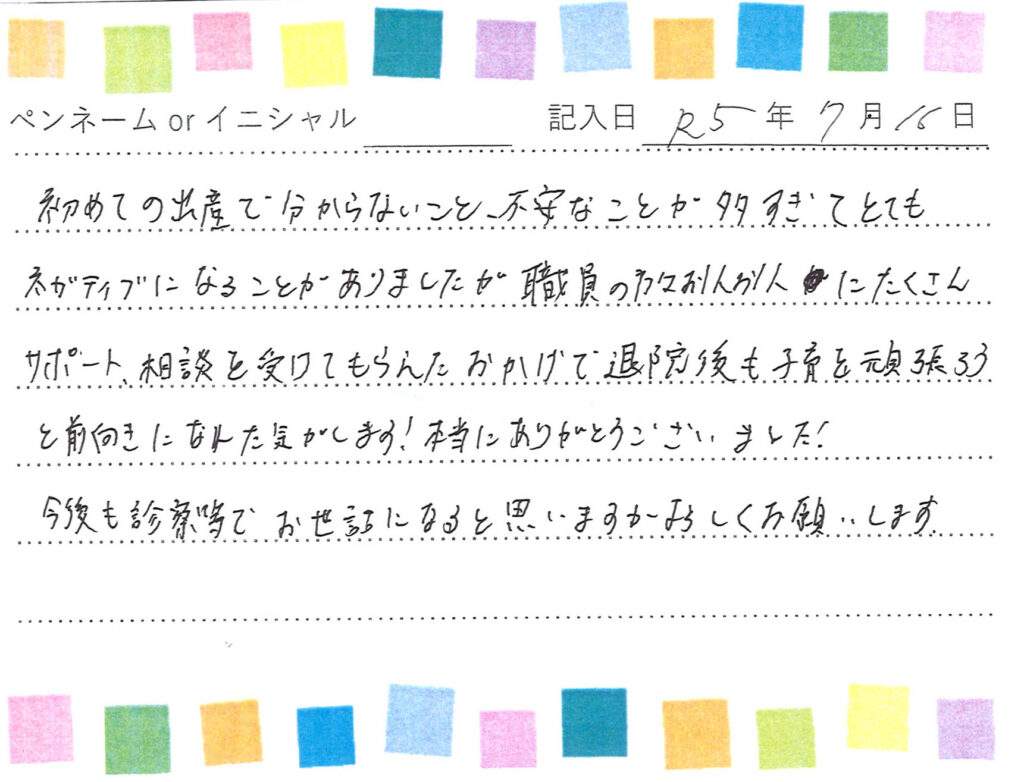 ペンネーム or イニシャル 記入日 R5年 7月 16日
初めての出産で分からないこと、不安なことが多すぎてとても
ネガティブになることがありましたが職員の方々お1人お1人にたくさん
サポート、相談を受けてもらえたおかげで退院後も子育を頑張ろう
と前向きになれた気がします!本当にありがとうございました!
今後も診察等でお世話になると思いますがよろしくお願いします